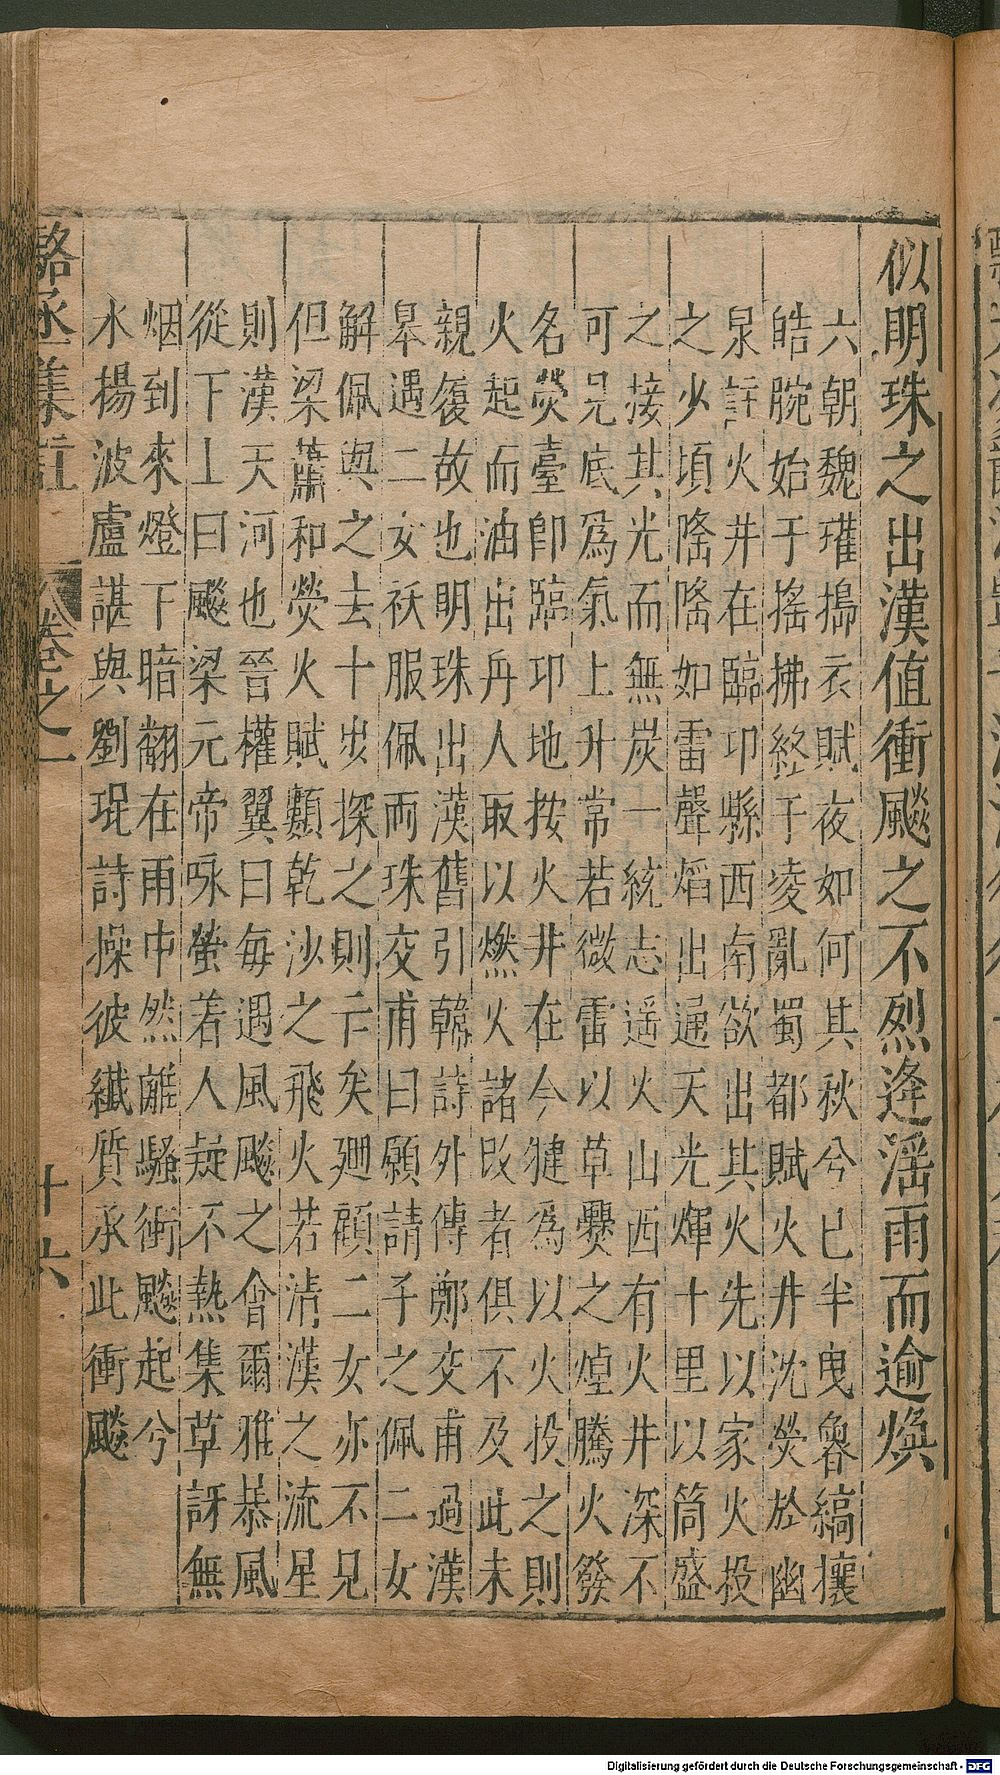 似明珠之出漢值衝飈之不烈逢滛雨而逾煥
六朝魏璀搗衣賦夜如何其秋兮已半曳魯縞攘
皓腕始于搖拂終于凌亂蜀都賦火井沈熒於幽
泉註火井在臨卭縣西南欲出其火先以家火投
之少頃隆隆如雷聲熖出通天光煇十里以筒盛
之接其光而無炭一統志遥火山西有火井深不
可見底爲氣上升常若微雷以草爨之煙騰火發
名熒臺卽臨卭地按火井在今犍爲以火投之則
火起而油出丹人取以燃火諸改者俱不及此未
親復故也明珠出漢舊引韓詩外傳鄭交甫過漢
皋遇二女袄服佩兩珠交甫曰願請子之佩二女
解佩與之去十步探之則亡矣廻顧二女亦不見
但梁蕭和熒火賦類乾沙之飛火若清漢之流星
則漢天河也晉權翼曰每遇風飈之會爾雅暴風
從下上曰飈梁元帝咏螢着人疑不熱集草訝無
烟到來燈下暗翻在雨中然離騷衝飈起兮
水楊波盧諶與劉琨詩操彼纖質承此衝飈
駱丞集註
卷之一
十六
Digitalisierung gefördert durch die Deutsche Forschungsgemeinschaft - DFG